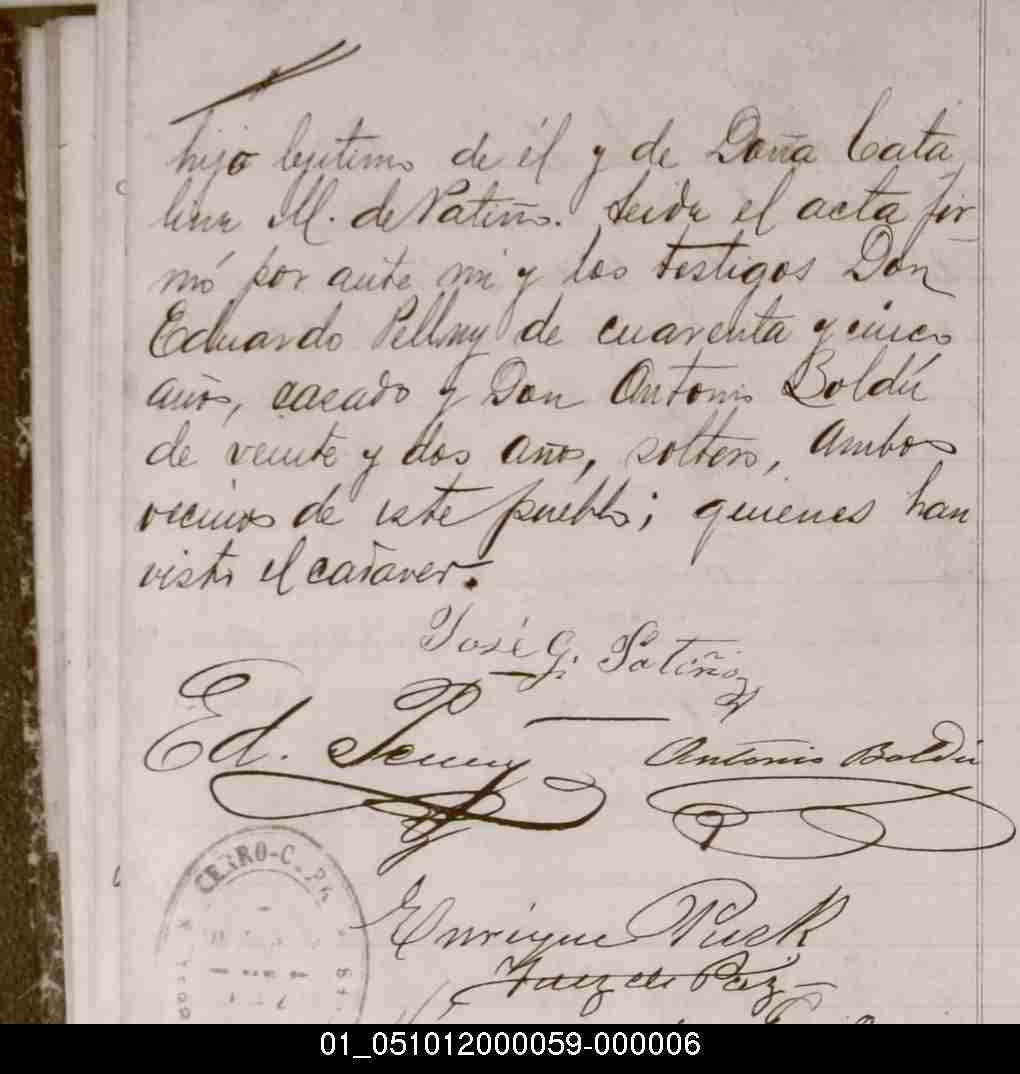 hijo lejitimo de él y de Doña Cata
lina M. de Patiño. Leida el acta fir
mó por ante mi y los testigos Don
Eduardo de cuarenta y cinco
años, casado y Don Antonio Boldú
de veinte y dos años, soltero, ambos
vecinos de este pueblo; quienes han
visto el cadaver.
José G. Patiño
Ed.
Antonio Boldú
CERRO-C.
Enrique Puck
Juez de Paz
01_051012000059-000006